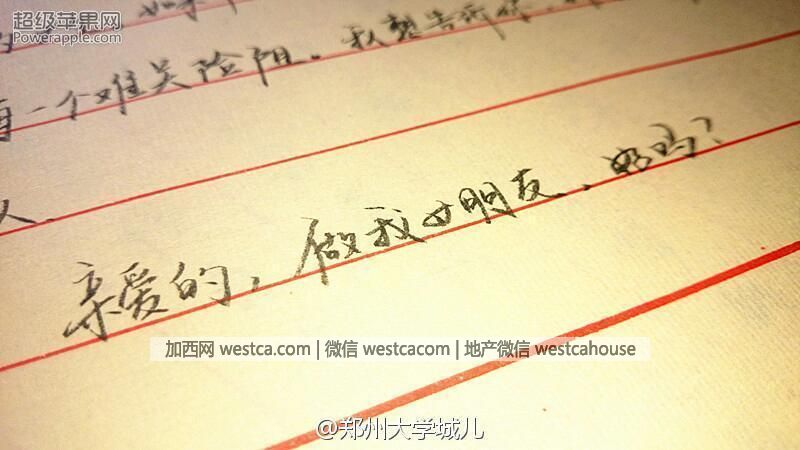 超级苹果网
Powerapple.com
一个难关险阻。我想告诉你、
人.
亲爱的，做我女朋友、好吗？
加西网 westca.com | 微信 westcacom | 地产微信 westcahouse
@郑州大学城儿